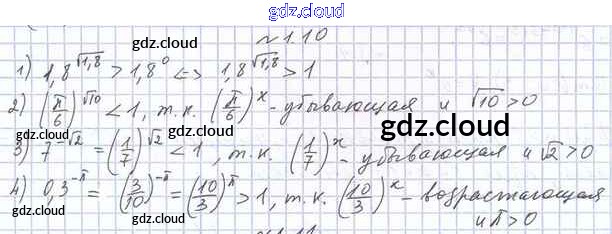 gdz.cloud
№1.10
gdz.cloud
gdz.cloud
1) 1,8^√1,8 > 1,8^0 <=> 1,8^√1,8 > 1
2) (π/6)^√10 < 1, т.к. (π/6)^x - убывающая и √10 > 0
gdz.cloud
gdz.cloud
3) 7^-√2 = (1/7)^√2 < 1, т.к. (1/7)^x - убывающая и √2 > 0
4) 0,3^-π = (3/10)^-π = (10/3)^π > 1, т.к. (10/3)^x - возрастающая
и π > 0
gdz.cloud
gdz.cloud
gdz.cloud